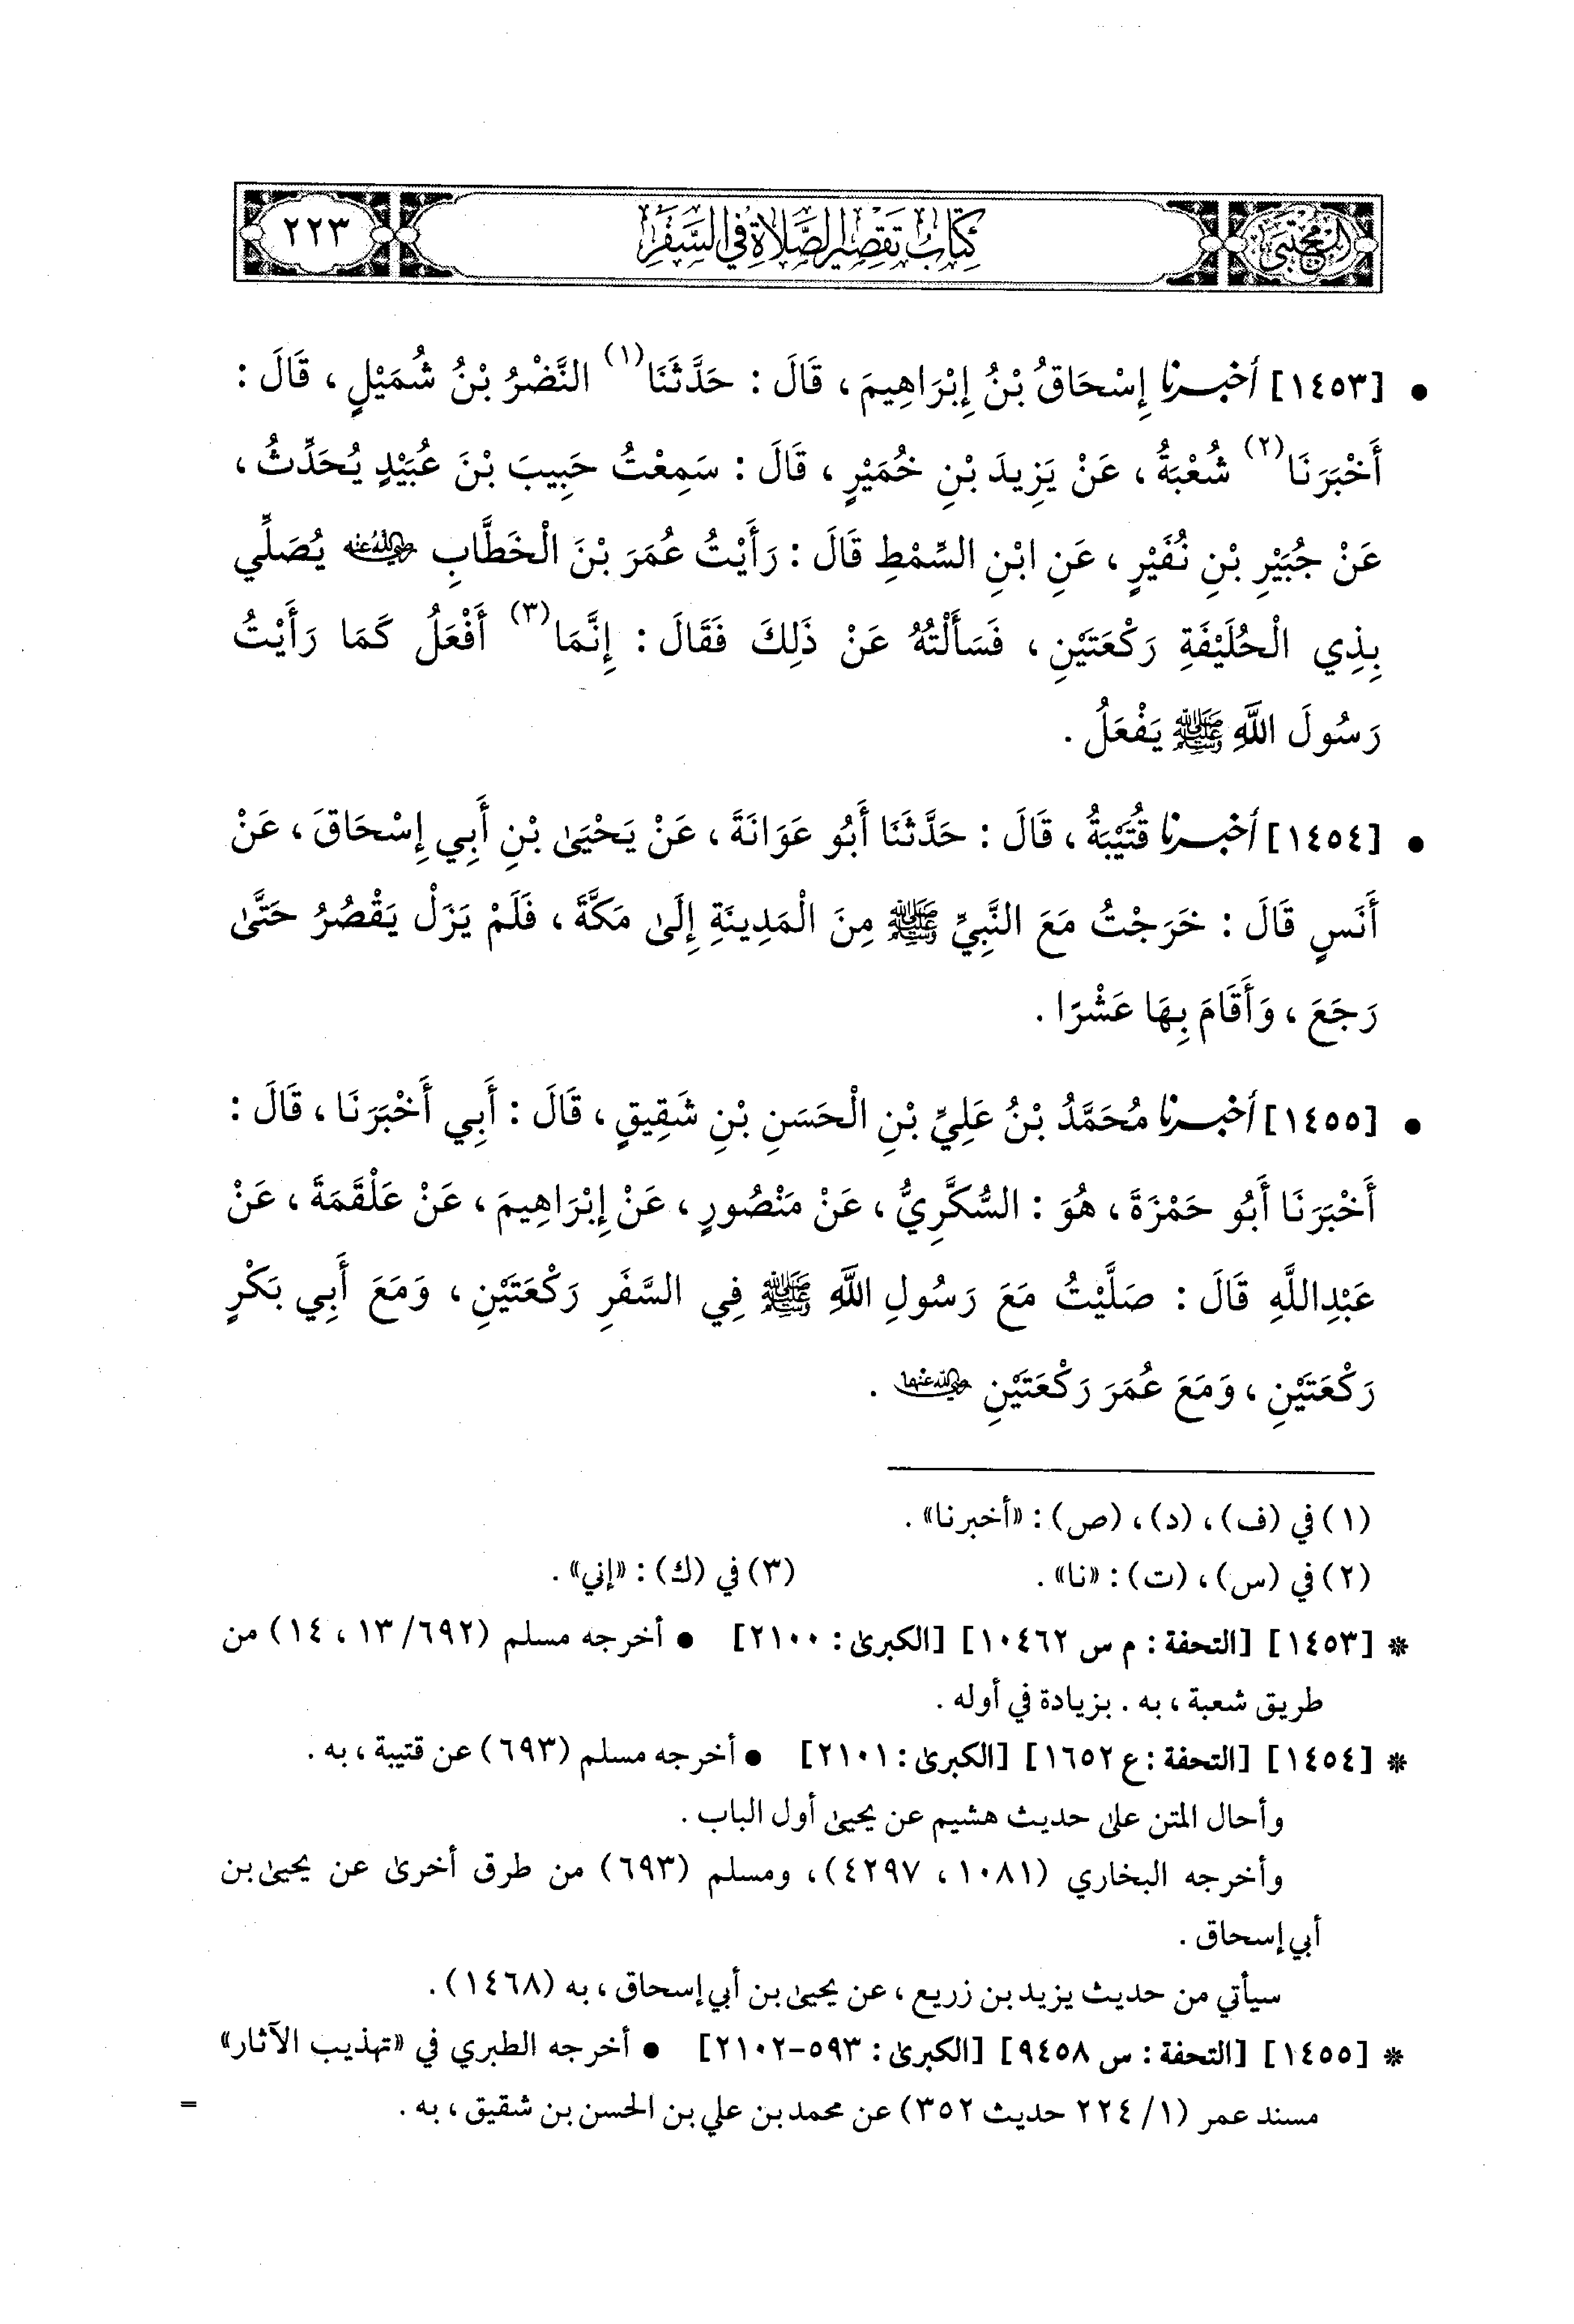 المجتبى
كتاب تقصير الصلاة في السفر
٢٢٣
• [١٤٥٣] أخبرنا إِسْحَاقُ بْنُ إِبْرَاهِيمَ، قَالَ: حَدَّثَنَا(١) النَّضْرُ بْنُ شُمَيْلٍ، قَالَ:
أَخْبَرَنَا(٢) شُعْبَةُ، عَنْ يَزِيدَ بْنِ خُمَيْرٍ، قَالَ: سَمِعْتُ حَبِيبَ بْنَ عُبَيْدٍ يُحَدِّثُ،
عَنْ جُبَيْرِ بْنِ نُفَيْرٍ، عَنِ ابْنِ السِّمْطِ قَالَ: رَأَيْتُ عُمَرَ بْنَ الْخَطَّابِ رضي الله عنه يُصَلِّي
بِذِي الْحُلَيْفَةِ رَكْعَتَيْنِ، فَسَأَلْتُهُ عَنْ ذَلِكَ فَقَالَ: إِنَّمَا(٣) أَفْعَلُ كَمَا رَأَيْتُ
رَسُولَ اللَّهِ ﷺ يَفْعَلُ.
• [١٤٥٤] أخبرنا قُتَيْبَةُ، قَالَ: حَدَّثَنَا أَبُو عَوَانَةَ، عَنْ يَحْيَىٰ بْنِ أَبِي إِسْحَاقَ، عَنْ
أَنَسٍ قَالَ: خَرَجْتُ مَعَ النَّبِيِّ ﷺ مِنَ الْمَدِينَةِ إِلَىٰ مَكَّةَ، فَلَمْ يَزَلْ يَقْصُرُ حَتَّىٰ
رَجَعَ، وَأَقَامَ بِهَا عَشْرًا.
• [١٤٥٥] أخبرنا مُحَمَّدُ بْنُ عَلِيِّ بْنِ الْحَسَنِ بْنِ شَقِيقٍ، قَالَ: أَبِي أَخْبَرَنَا، قَالَ:
أَخْبَرَنَا أَبُو حَمْزَةَ، هُوَ: السُّكَّرِيُّ، عَنْ مَنْصُورٍ، عَنْ إِبْرَاهِيمَ، عَنْ عَلْقَمَةَ، عَنْ
عَبْدِاللَّهِ قَالَ: صَلَّيْتُ مَعَ رَسُولِ اللَّهِ ﷺ فِي السَّفَرِ رَكْعَتَيْنِ، وَمَعَ أَبِي بَكْرٍ
رَكْعَتَيْنِ، وَمَعَ عُمَرَ رَكْعَتَيْنِ رضي الله عنهما.
(١) في (ف)، (د)، (ص): «أخبرنا».
(٢) في (س)، (ت): «نا». (٣) في (ك): «إني».
* [١٤٥٣] [التحفة: م س ١٠٤٦٢] [الكبرىٰ: ٢١٠٠] • أخرجه مسلم (٦٩٢/ ١٣، ١٤) من
طريق شعبة، به. بزيادة في أوله.
* [١٤٥٤] [التحفة: ع ١٦٥٢] [الكبرىٰ: ٢١٠١] • أخرجه مسلم (٦٩٣) عن قتيبة، به.
وأحال المتن علىٰ حديث هشيم عن يحيىٰ أول الباب.
وأخرجه البخاري (١٠٨١، ٤٢٩٧)، ومسلم (٦٩٣) من طرق أخرىٰ عن يحيىٰ بن
أبي إسحاق.
سيأتي من حديث يزيد بن زريع، عن يحيىٰ بن أبي إسحاق، به (١٤٦٨).
* [١٤٥٥] [التحفة: س ٩٤٥٨] [الكبرىٰ: ٥٩٣-٢١٠٢] • أخرجه الطبري في «تهذيب الآثار»
مسند عمر (١/ ٢٢٤ حديث ٣٥٢) عن محمد بن علي بن الحسن بن شقيق، به. =